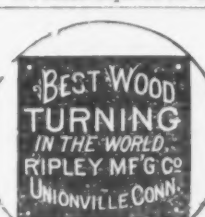 BEST WOOD
TURNING
IN THE WORLD.
RIPLEY M'F'G CO
UNIONVILLE CONN.